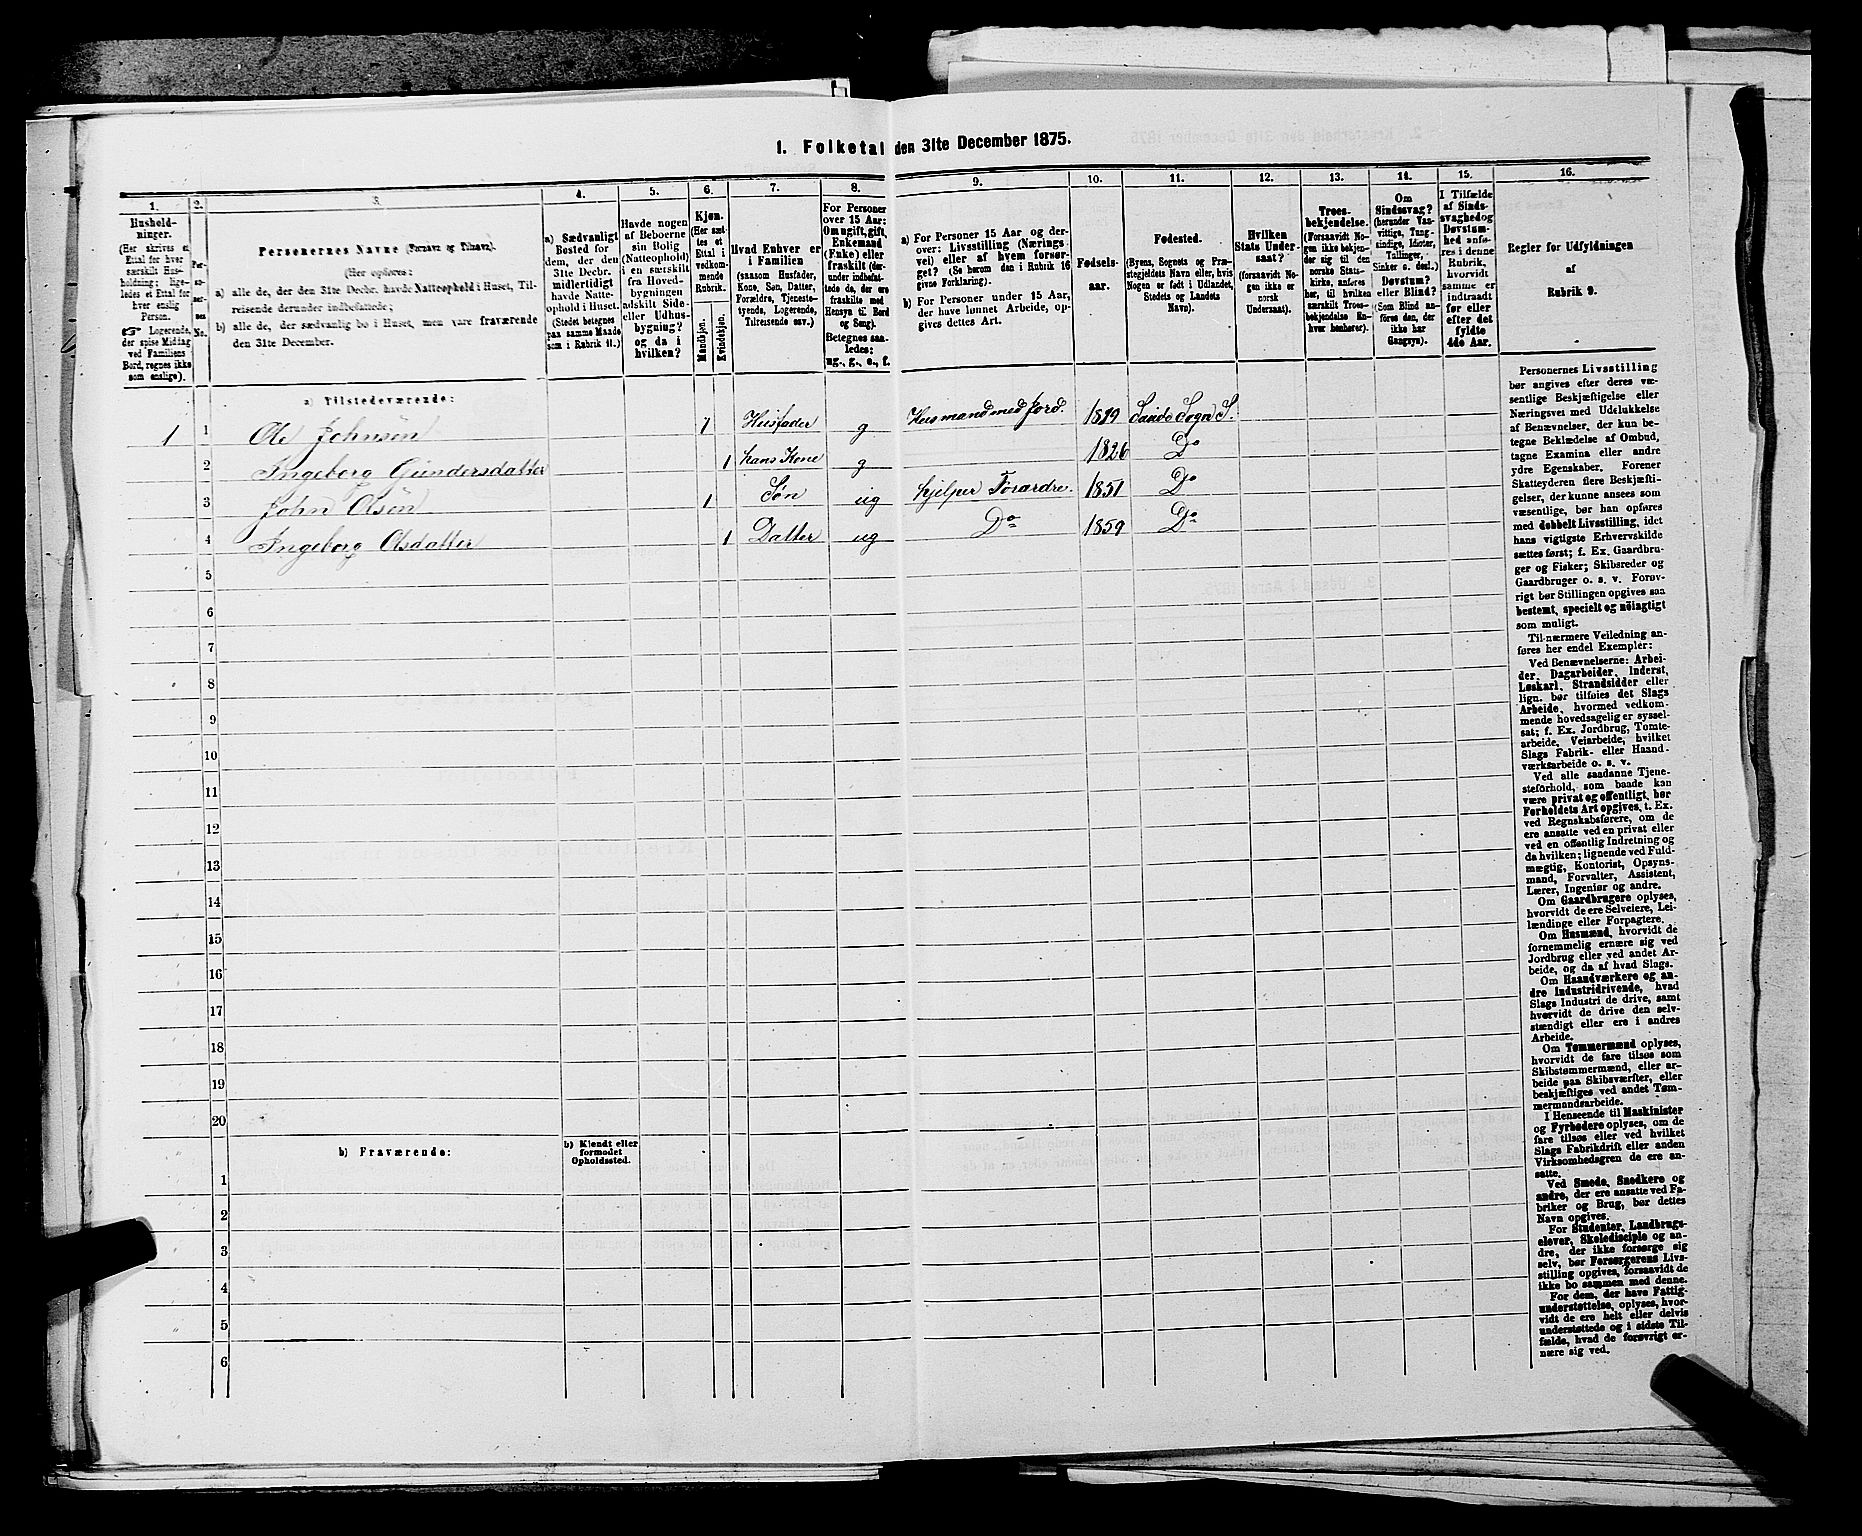 1. Folketal den 31te December 1875.
1.
2.
3.
4.
5.
6.
7.
8.
9.
10.
11.
12.
13.
14.
15.
16.
Hushold-
ninger.
(Her skrives et
Ettal for hver
særskilt Hus-
holdning; lige-
ledes et Ettal for
hver enslig
Person.
☞ Logerende,
der spise Middag
ved Familiens
Bord, regnes ikke
som enslige).
Per-
so-
ner-
nes
No.
Personernes Navne (Fornavn og Tilnavn).
(Her opføres:
a) alle de, der den 31te Decbr. havde Natteophold i Huset, Til-
reisende derunder indbefattede;
b) alle de, der sædvanlig bo i Huset, men vare fraværende
den 31te December.
a) Sædvanligt
Bosted for
dem, der den
31te Decbr.
midlertidigt
havde Natte-
ophold i Huset.
(Stedet betegnes
paa samme Maade
som i Rubrik 11.)
Havde nogen
af Beboerne
sin Bolig
(Natteophold)
i en særskilt
fra Hoved-
bygningen
adskilt Side-
eller Udhus-
bygning?
og da i
hvilken?
Kjøn.
(Her sæt-
tes et
Ettal i
vedkom-
mende
Rubrik.
Mandkjøn.
Kvindekjøn.
Hvad Enhver er
i Familien
(saasom Husfader,
Kone, Søn, Datter,
Forældre, Tjeneste-
tyende, Logerende,
Tilreisende osv.)
For Personer
over 15 Aar:
Om ugift, gift,
Enkemand
(Enke) eller
fraskilt (der-
under indbefat-
tede de, der ere
fraskilte med
Hensyn til Bord
og Seng).
Betegnes saa-
ledes:
ug., g., e., f.
a) For Personer 15 Aar og der-
over: Livsstilling (Nærings-
vei) eller af hvem forsør-
get? (Se herom den i Rubrik 16
givne Forklaring).
b) For Personer under 15 Aar,
der have lønnet Arbeide, op-
gives dettes Art.
Fødsels-
aar.
Fødested.
(Byens, Sognets og Præ-
stegjeldets Navn eller, hvis
Nogen er født i Udlandet,
Stedets og Landets
Navn).
Hvilken
Stats Under-
saat?
(forsaavidt No-
gen ikke er
norsk
Undersaat).
Troes-
bekjendelse.
(Forsaavidt No-
gen ikke bekjen-
der sig til den
norske Stats-
kirke, anføres
her, til hvilken
særskilt Troes-
bekjendelse En-
hver henhører).
Om
Sindssvag?
(herunder Van-
vittige, Tung-
sindige, Idioter,
Tullinger,
Sinker o. desl.)
Døvstum?
eller Blind?
(Som Blind an-
føres den, der
ikke har
Gangsyn).
I Tilfælde
af Sinds-
svaghed og
Døvstum-
hed anfø-
res i denne
Rubrik,
hvorvidt
samme er
indtraadt
før eller
efter det
fyldte
4de Aar.
Regler for Udfyldningen
af
Rubrik 9.
a) Tilstedeværende:
1 1 Ole Johnsen 1 Husfader g Husmand med Jord. 1819 Sande Sogn S.
2 Ingeborg Gundersdatter 1 hans Kone g 1826 Do
3 John Olsen 1 Søn ug hjelper Forældre. 1851 Do
4 Ingeborg Olsdatter 1 Datter ug Do 1859 Do
5
6
7
8
9
10
11
12
13
14
15
16
17
18
19
20
b) Fraværende:
b) Kjendt eller
formodet
Opholdssted.
1
2
3
4
5
6
Personernes Livsstilling
bør angives efter deres væ-
sentlige Beskjæftigelse eller
Næringsvei med Udelukkelse
af Benævnelser, der kun be-
tegne Beklædelse af Ombud,
tagne Examina eller andre
ydre Egenskaber. Forener
Skatteyderen flere Beskjæfti-
gelser, der kunne ansees som
væsentlige, bør han opføres
med dobbelt Livsstilling, idet
hans vigtigste Erhvervskilde
sættes først; f. Ex. Gaardbru-
ger og Fisker; Skibsreder og
Gaardbruger o. s. v. Forøv-
rigt bør Stillingen opgives saa
bestemt, specielt og nöiagtigt
som muligt.
Til nærmere Veiledning an-
føres her endel Exempler:
Ved Benævnelserne: Arbei-
der, Dagarbeider, Inderst,
Løskarl, Strandsidder eller
lign. bør tilføies det Slags
Arbeide, hvormed vedkom-
mende hovedsagelig er syssel-
sat; f. Ex. Jordbrug, Tomte-
arbeide, Veiarbeide, hvilket
Slags Fabrik- eller Haand-
værksarbeide o. s. v.
Ved alle saadanne Tjene-
steforhold, som baade kan
være privat og offentligt, bør
Forholdets Art opgives, t. Ex.
ved Regnskabsførere, om de
ere ansatte ved en privat eller
ved en offentlig Indretning og
da hvilken; lignende ved Fuld-
mægtig, Kontorist, Opsyns-
mand, Forvalter, Assistent,
Lærer, Ingeniør og andre.
Om Gaardbrugere oplyses,
hvorvidt de ere Selveiere, Lei-
lændinge eller Forpagtere.
Om Husmænd, hvorvidt de
fornemmelig ernære sig ved
Jordbrug eller ved andet Ar-
beide, og da af hvad Slags.
Om Haandværkere og an-
dre Industridrivende, hvad
Slags Industri de drive, samt
hvorvidt de drive den selv-
stændigt eller ere i andres
Arbeide.
Om Tømmermænd oplyses,
hvorvidt de fare tilsøs som
Skibstømmermænd, eller ar-
beide paa Skibsværfter, eller
beskjæftiges ved andet Tøm-
mermandsarbeide.
I Henseende til Maskinister
og Fyrbødere oplyses, om de
fare tilsøs eller ved hvilket
Slags Fabrikdrift eller anden
Virksomhedsgren de ere an-
satte.
Ved Smede, Snedkere og
andre, der ere ansatte ved Fa-
briker og Brug, bør dettes
Navn opgives.
For Studenter, Landbrugs-
elever, Skoledisciple og an-
dre, der ikke forsørge sig
selv, bør Forsørgerens Livs-
stilling opgives, forsaavidt de
ikke bo sammen med denne.
For dem, der have Fattig-
understøttelse, oplyses, hvor-
vidt de ere helt eller delvis
understøttede og i sidste Til-
fælde, hvad de forøvrigt er-
nære sig ved.